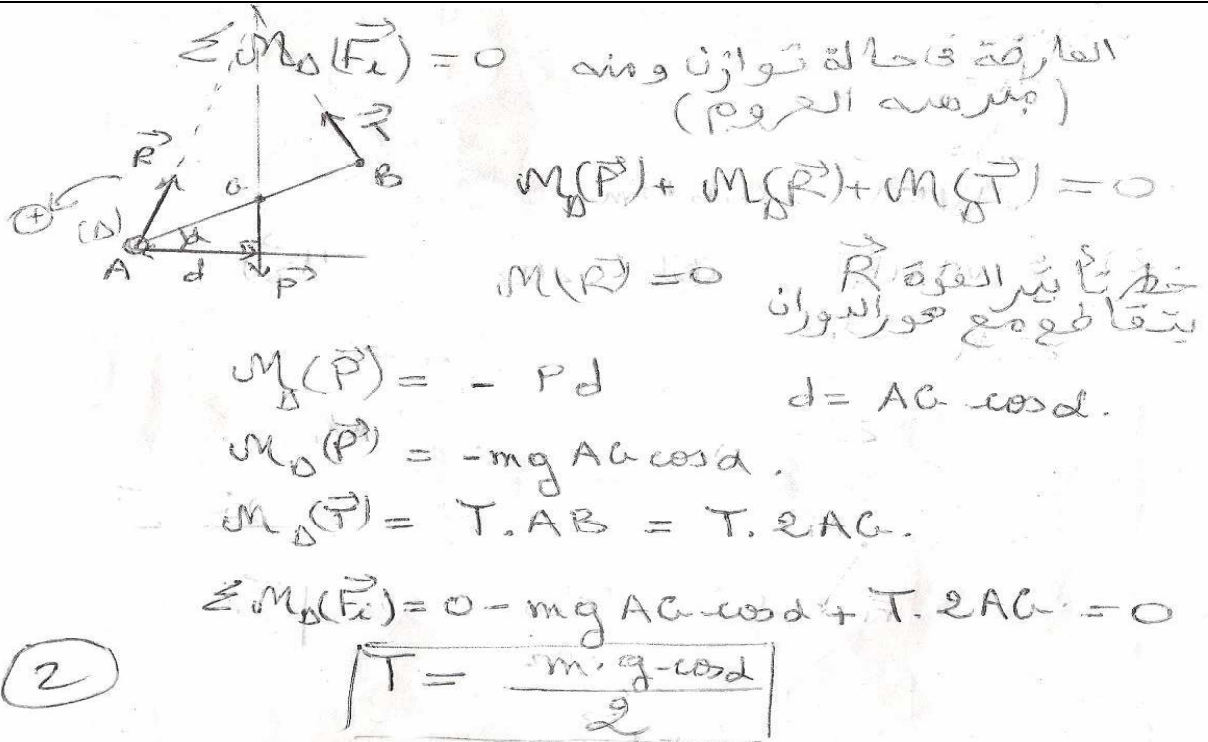 Σ M_Δ(F⃗i) = 0 العارضة في حالة توازن ومنه
(مبرهنة العزوم)
R⃗ T⃗ B G
⊕ (Δ) α
A d P⃗
M_Δ(P⃗) + M_Δ(R⃗) + M_Δ(T⃗) = 0
M(R⃗) = 0 خط تأثير القوة R⃗
يتقاطع مع محور الدوران
M_Δ(P⃗) = - Pd d = AG cosα.
M_Δ(P⃗) = -mg AG cosα.
M_Δ(T⃗) = T. AB = T. 2AG.
Σ M_Δ(F⃗i) = 0 - mg AG cosα + T. 2AG = 0
2 T = m.g.cosα / 2